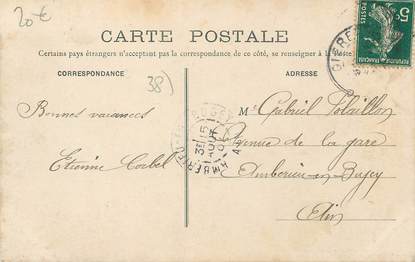 20€
CARTE POSTALE
Certains pays étrangers n'acceptant pas la correspondance de ce côté, se renseigner à la
CORRESPONDANCE
ADRESSE
38)
Bonnes vacances
Etienne Corbel
M. Gabriel
Avenue de la gare
Amberieu-en-Bugey
Ain
5c
POSTES
REPUBLIQUE FRANÇAISE
GIERES
AMBERIEU
BUGEY
AOUT